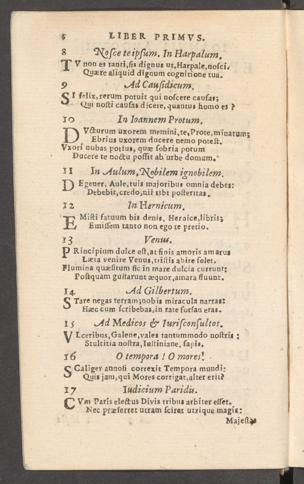 6 LIBER PRIMVS.
8 Nosce teipsum. In Harpalum.
TV non es tanti, sis dignus ut, Harpale, nosci,
Quære aliquid dignum cognitione tua.
9 Ad Causidicum.
SI felix, rerum potuit qui noscere causas;
Qui nosti causas dicere, quantus homo es?
10 In Ionem Protum.
DUcturum uxorem memini, te, Prote, minatum;
Ebrius uxorem ducere nemo potest.
Uxori nubas potius, quæ sobria potum
Ducere te noctu possit ab urbe domum.
11 In Aulum, Nobilem ignobilem.
DEgener, Aule, tuis majoribus omnia debes:
Debebit, credo, nil tibi posteritas.
12 In Hernicum.
EMisti fatuum bis denis, Heroice, libris;
Emissem tanto non ego te pretio.
13 Venus.
PRincipium dulce est, at finis amoris amarus
Læta venire Venus, tristis abire solet.
Flumina quæsitum sic in mare dulcia currunt;
Postquam gustarunt æquor, amara fluunt.
14 Ad Gilbertum.
STare negas terram; nobis miracula narras:
Hæc cum scribebas, in rate forsan eras.
15 Ad Medicos & Iurisconsultos.
VLceribus, Galene, vales tantummodo nostris:
Stultitia nostra, Iustiniane, sapis.
16 O tempora! O mores!
SCaliger annosi correxit Tempora mundi:
Quis jam, qui Mores corrigat, alter erit?
17 Iudicium Paridis.
CVm Paris electus Divis tribus arbiter esset,
Nec præferret utram sciret utrique magis:
Majestas